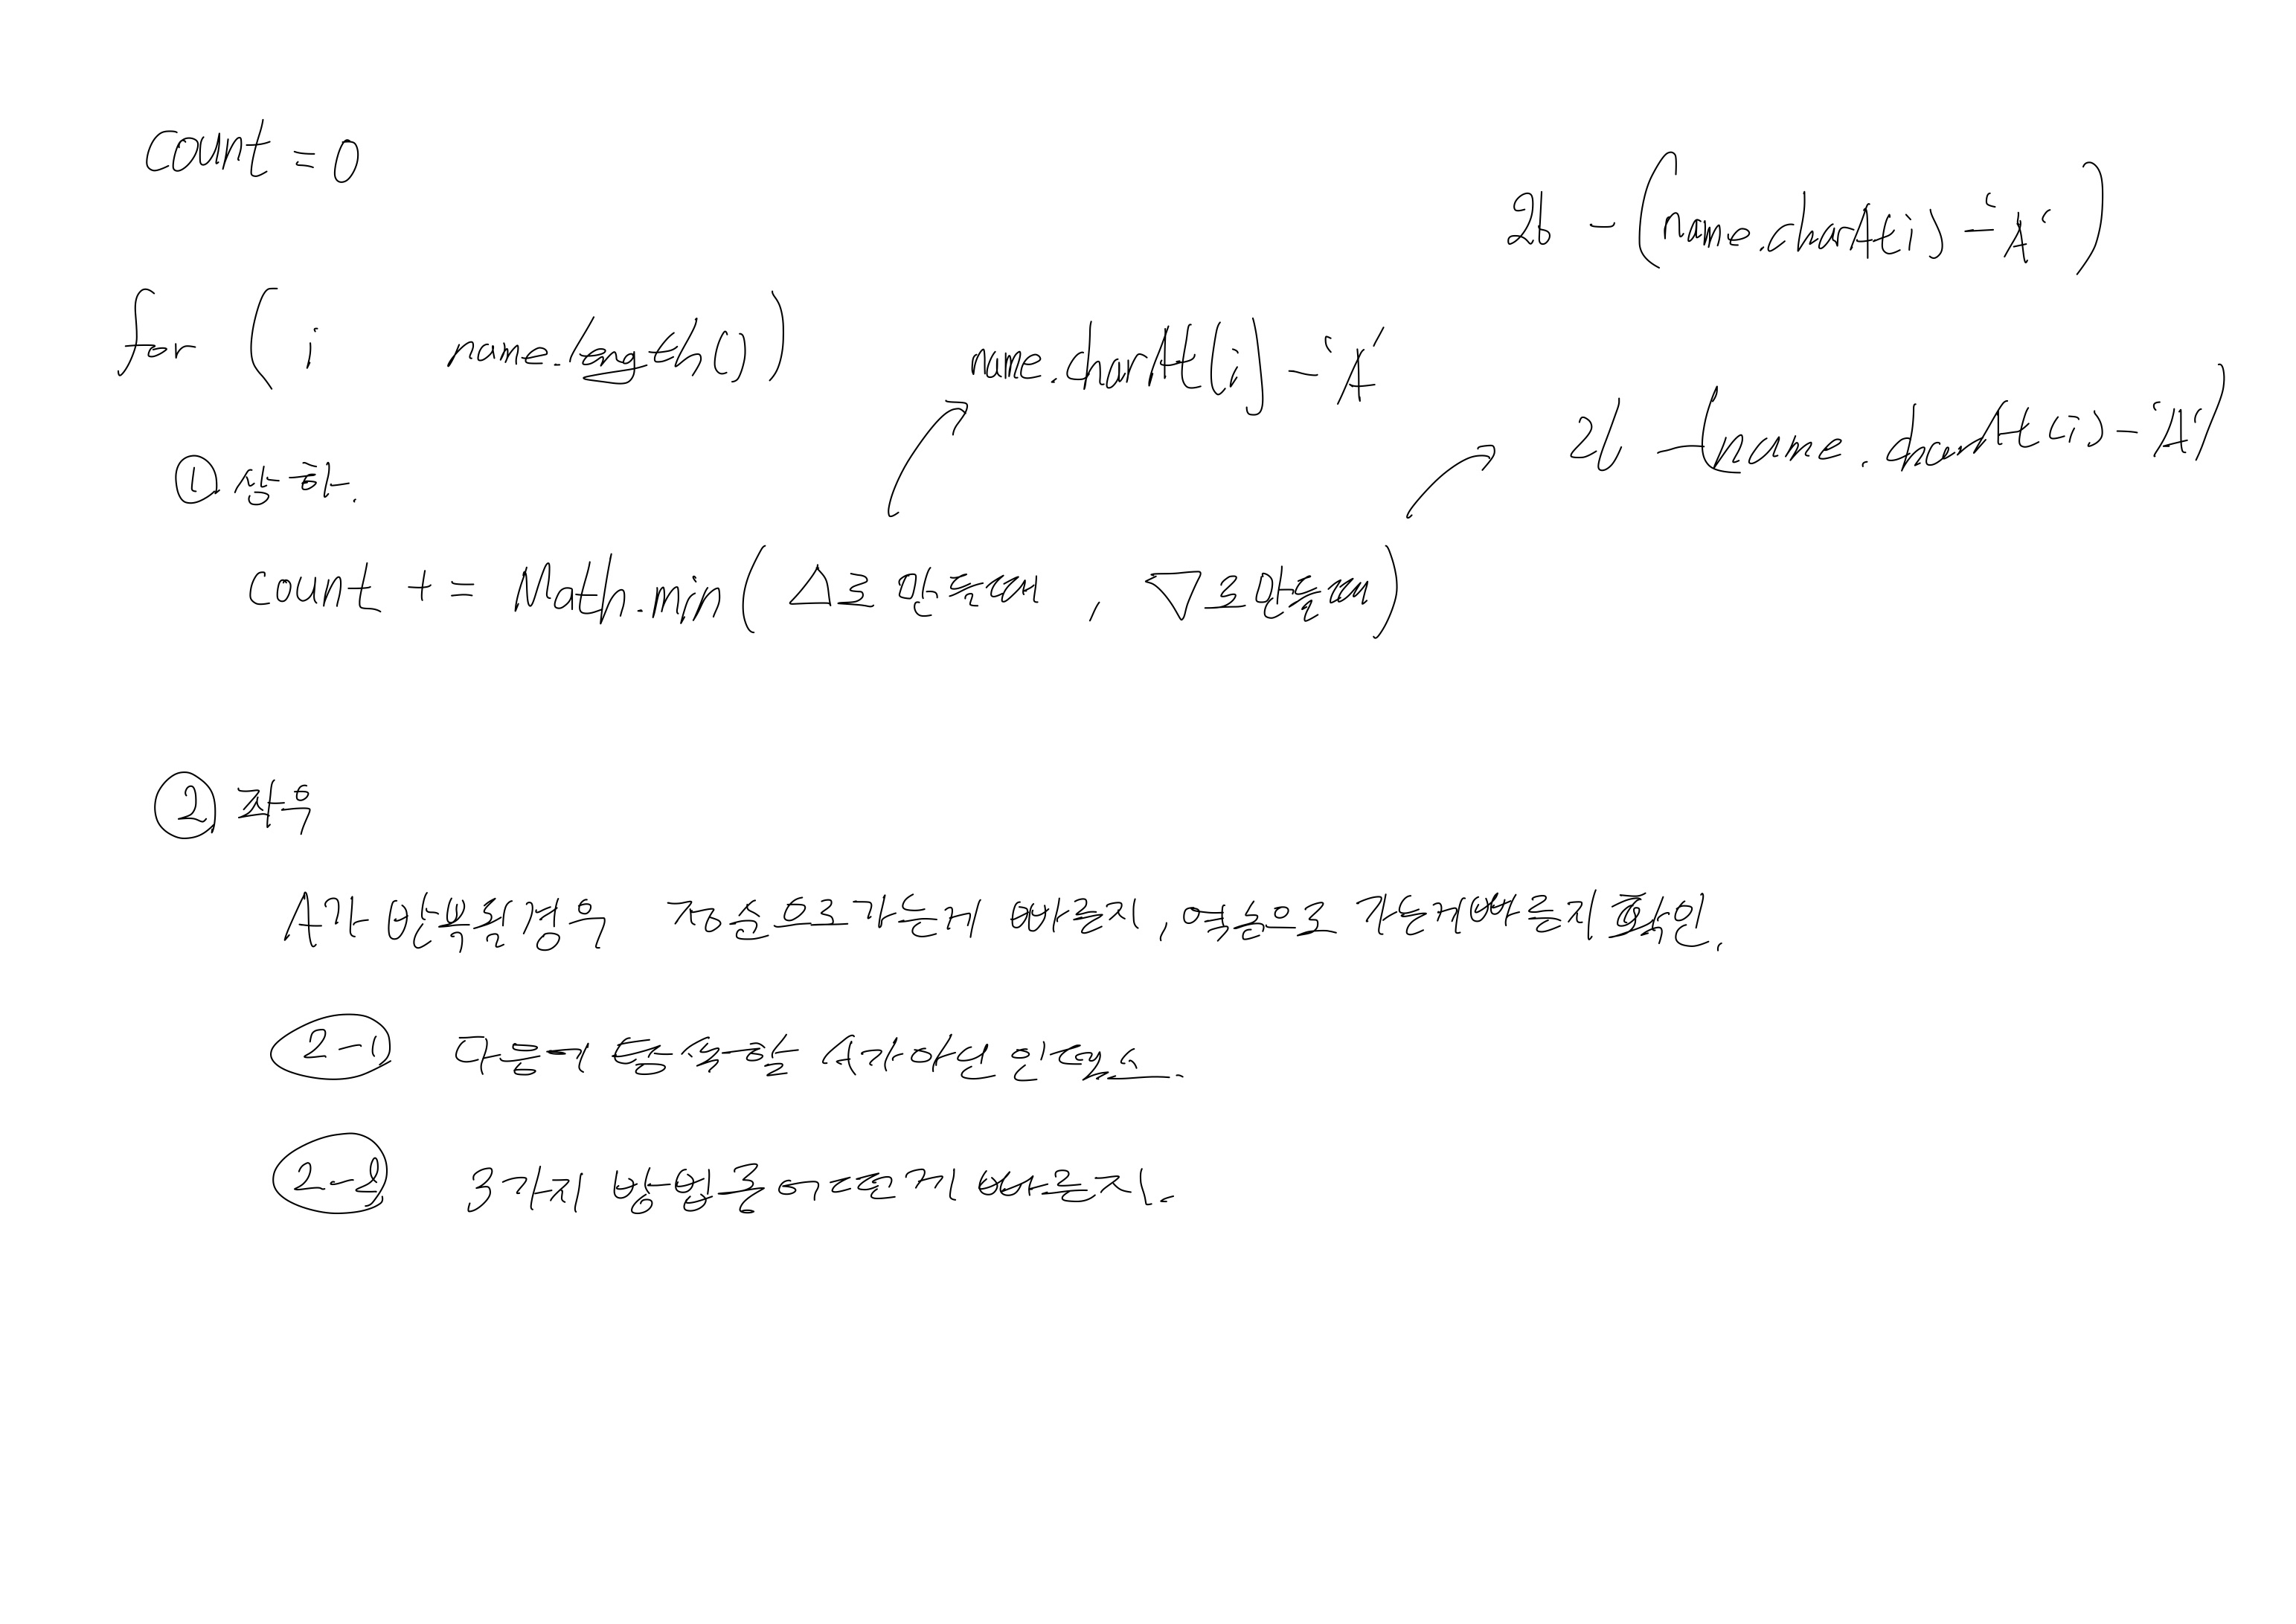 count = 0
26 - (name.charAt(i) - 'A')
for ( i name.length())
name.charAt(i) - 'A'
26 - (name.charAt(i) - 'A')
① 상하.
count += Math.min( △로 만들때 , ▽로 만들때)
② 좌우
A가 반복될경우 정순으로가는게 빠를지, 역순으로 가는게빠른지 확인.
2-1 다음에 등장할 A가아닌 인덱스.
2-2 3가지 방법중 어떤게 빠른지.